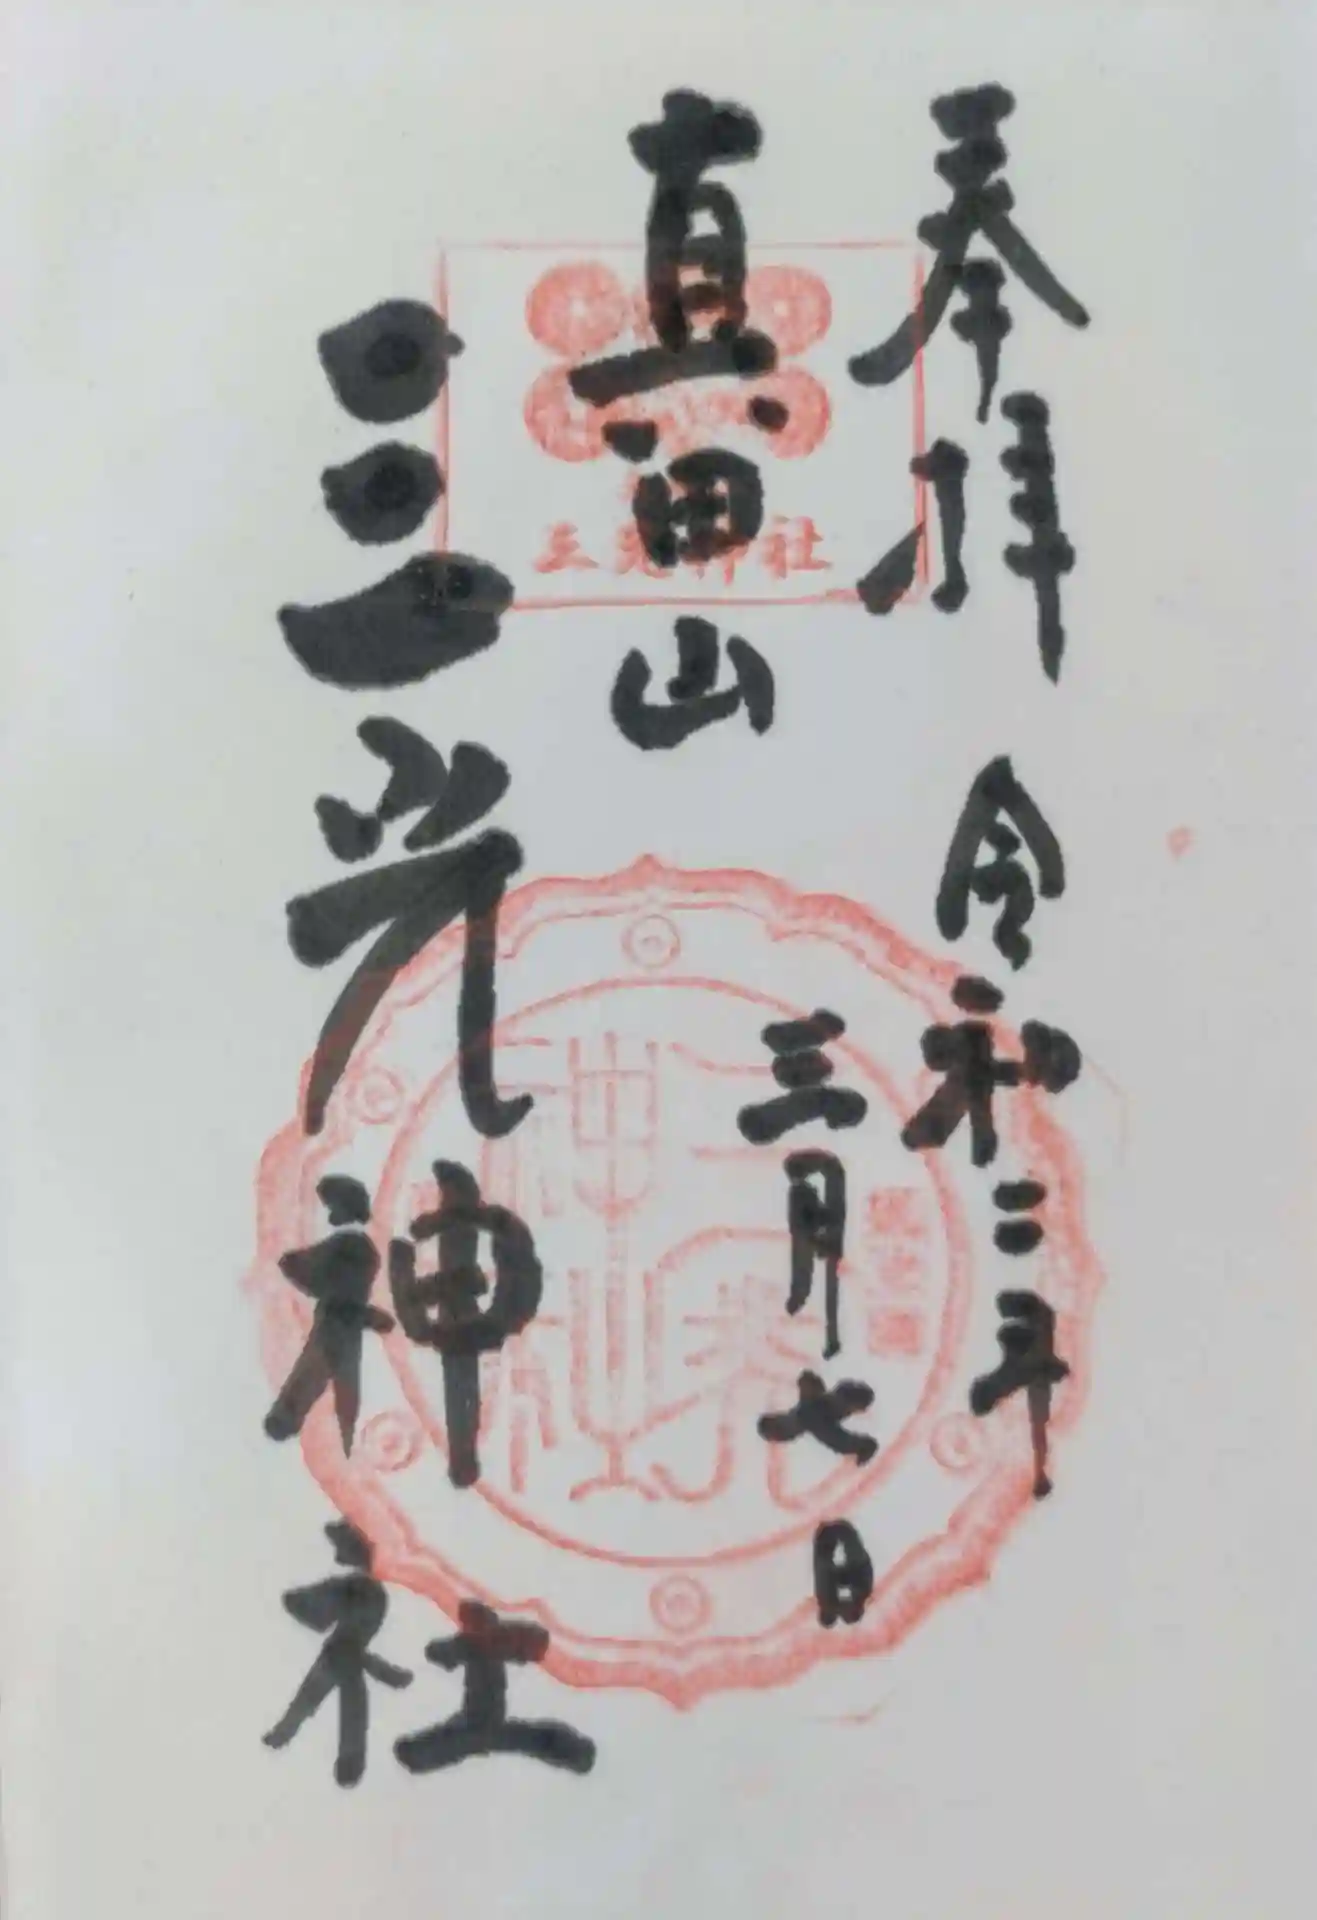 奉拝
令和二年
三月七日
真田山
三光神社
三光神社